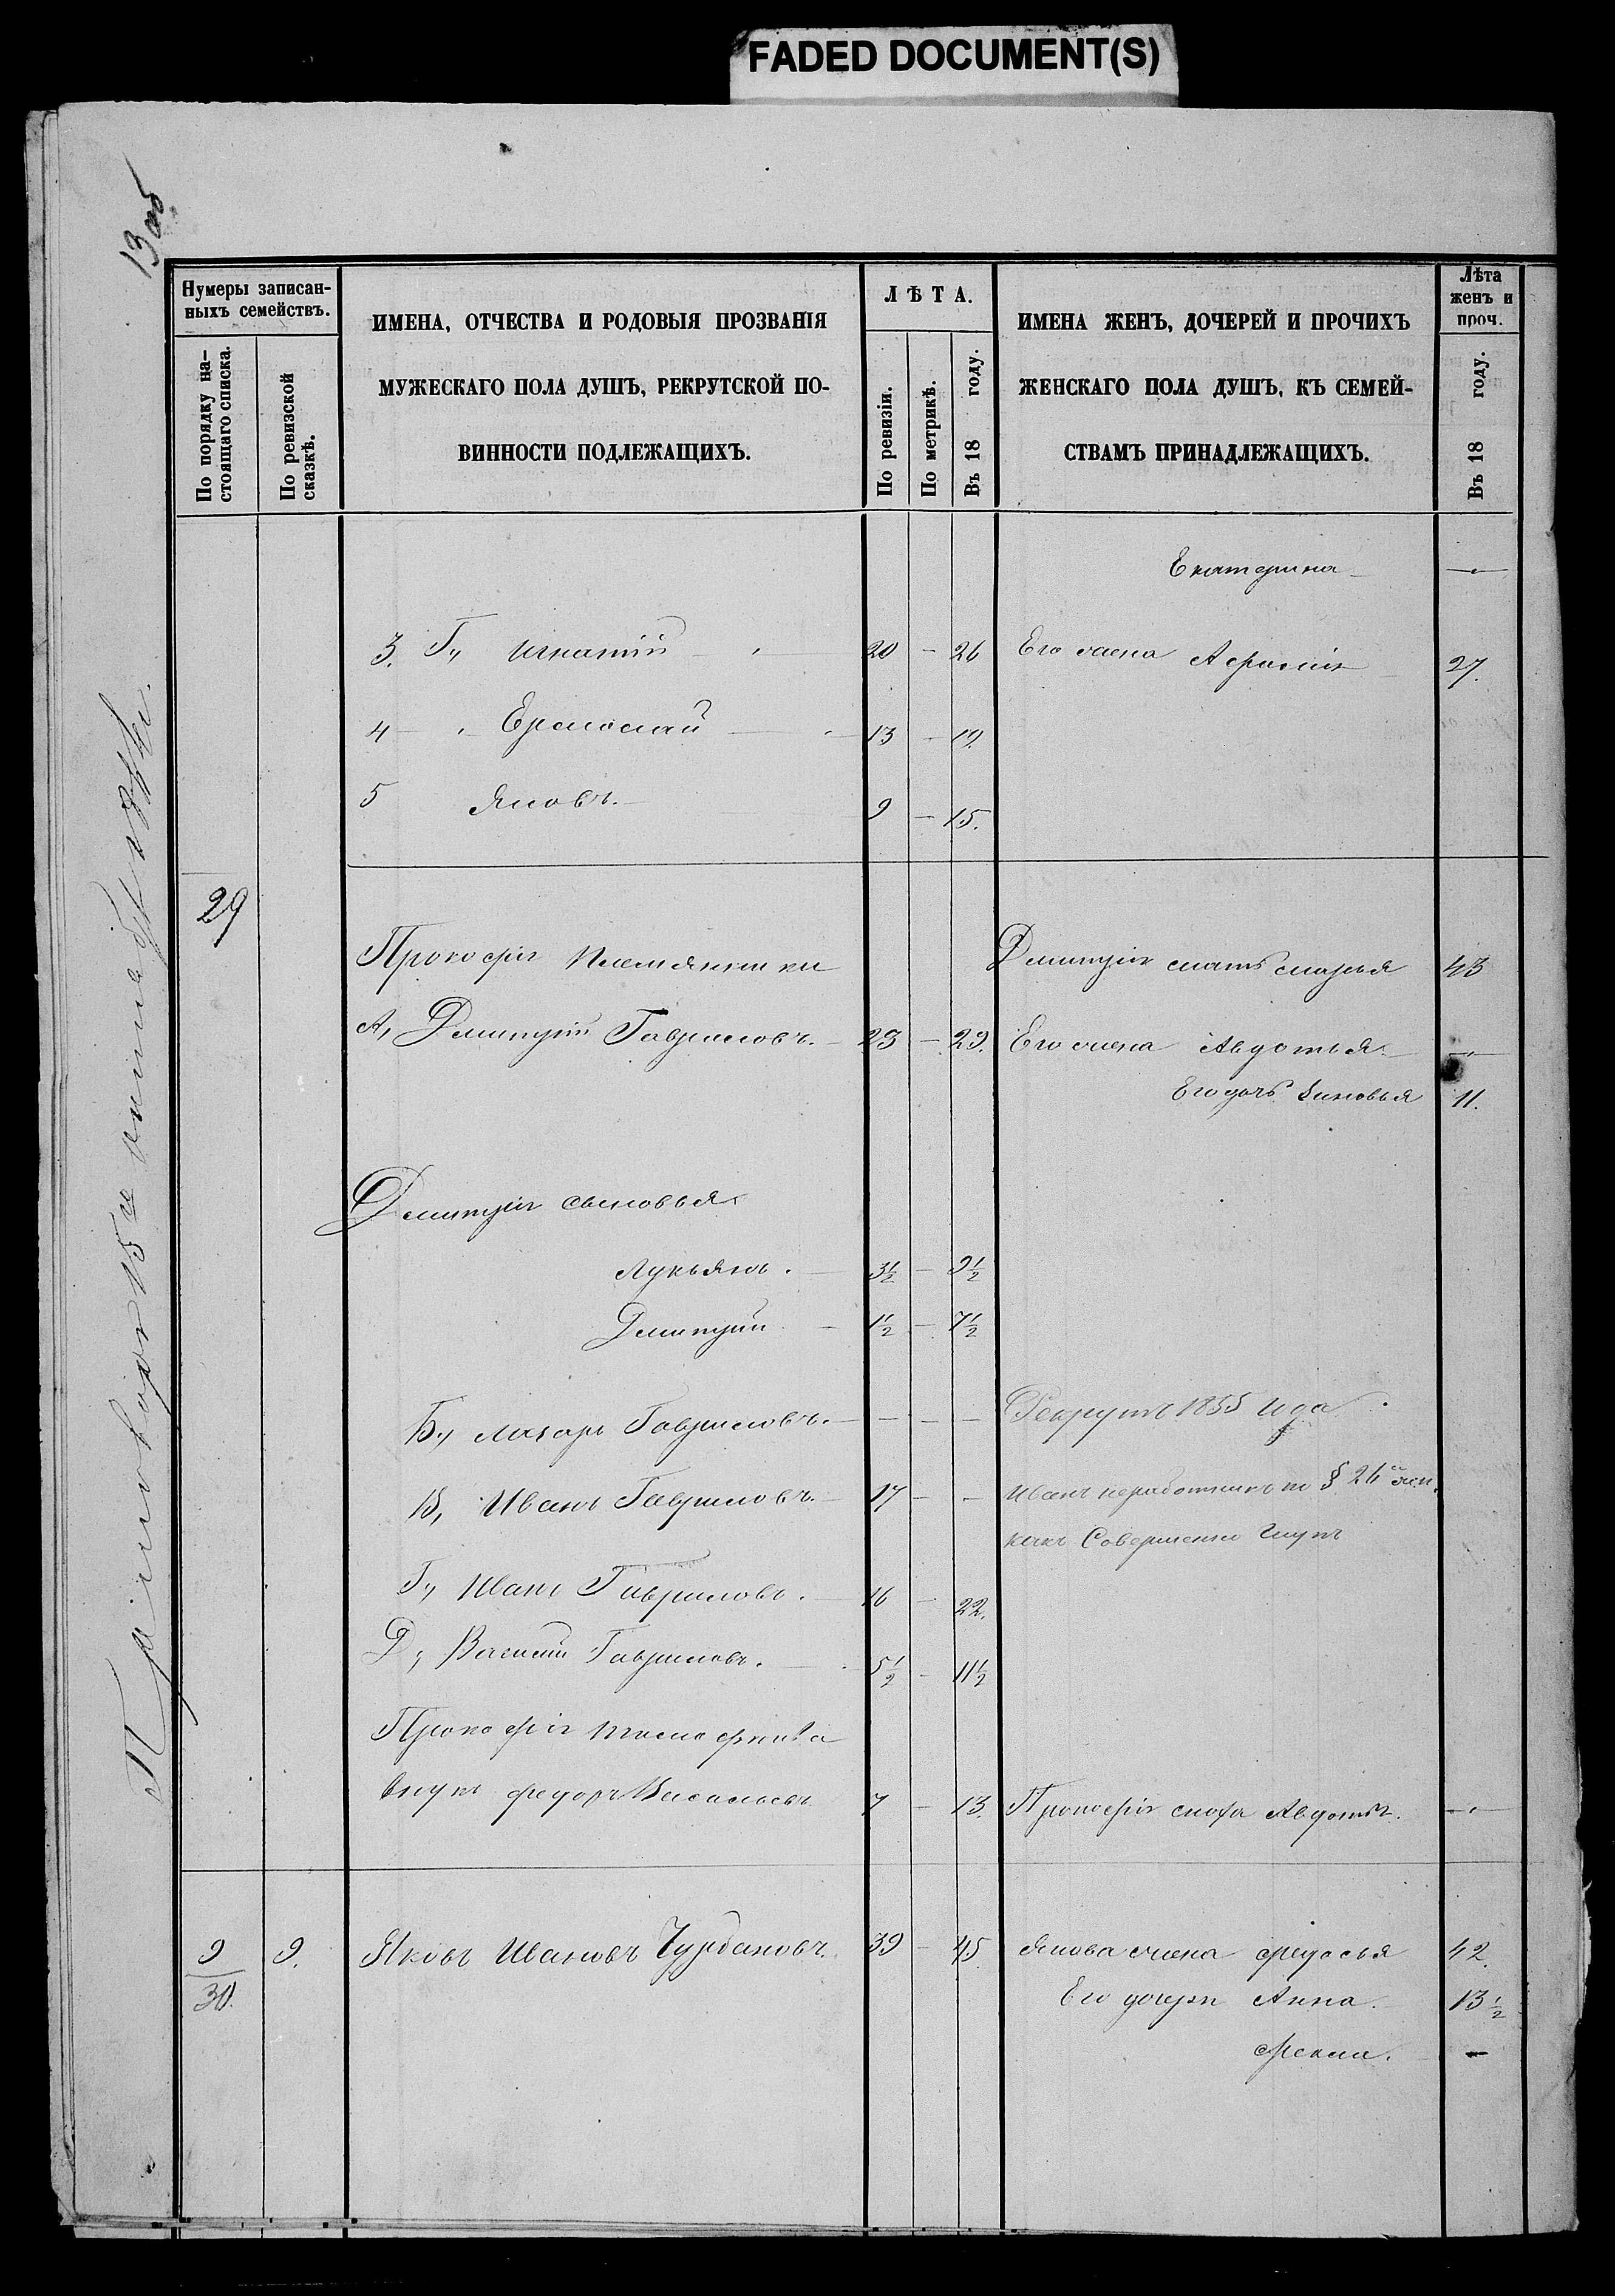 FADED DOCUMENT(S)
13 об
Нумеры записан-
ныхъ семействъ.
По порядку на-
стоящаго списка.
По ревизской
сказкѣ.
ИМЕНА, ОТЧЕСТВА И РОДОВЫЯ ПРОЗВАНІЯ
МУЖЕСКАГО ПОЛА ДУШЪ, РЕКРУТСКОЙ ПО-
ВИННОСТИ ПОДЛЕЖАЩИХЪ.
ЛѢТА.
По ревизіи.
По метрикѣ.
Въ 18 году.
ИМЕНА ЖЕНЪ, ДОЧЕРЕЙ И ПРОЧИХЪ
ЖЕНСКАГО ПОЛА ДУШЪ, КЪ СЕМЕЙ-
СТВАМЪ ПРИНАДЛЕЖАЩИХЪ.
Лѣта
женъ и
проч.
Въ 18 году.
Екатерина —
3. Г., Игнатій 20 — 26 Его жена 27.
4 — Ермолай 13 — 19.
5 Яковъ. 9 — 15.
29
Прокофія племянники Дмитрія мать Марья 43
А, Дмитрій Гавриловъ. 23 — 29. Его жена Авдотья —
Его дочь Зиновья 11.
Дмитрія сыновья
Лукьянъ. 3½ — 9½
Дмитрій 1½ — 7½
Б., Лазарь Гавриловъ. — — — Рекрутъ 1855 года
В, Иванъ Гавриловъ. 17 — — Иванъ неработникъ по § 26
какъ Совершенно Глупъ
Г., Иванъ Гавриловъ. 16 — 22.
Д., Василій Гавриловъ. 5½ — 11½
Прокофія Тимофеева
внукъ Федоръ Васильевъ 7 — 13. Прокофія сноха Авдотья. —
9 9. Яковъ Ивановъ Чурбановъ. 39 — 45 Якова жена Федосья 42.
30. Его дочери Анна. 13½
Фекла. —